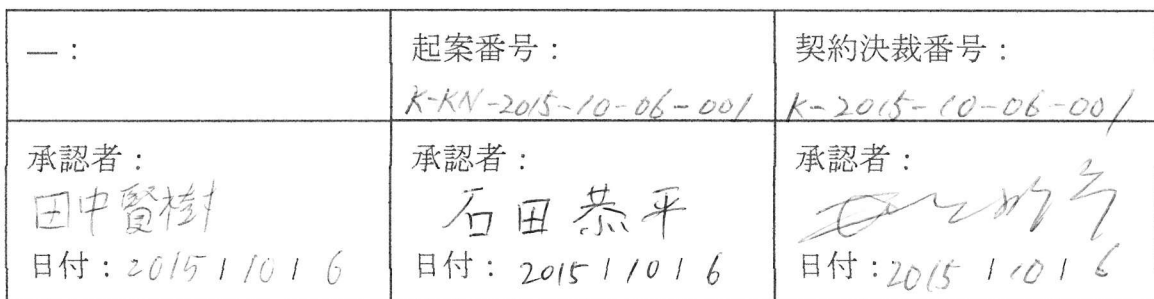 —：
起案番号：
K-KN-2015-10-06-001
契約決裁番号：
K-2015-10-06-001
承認者：
田中賢樹
日付：2015/10/6
承認者：
石田恭平
日付：2015/10/6
承認者：
日付：2015/10/6